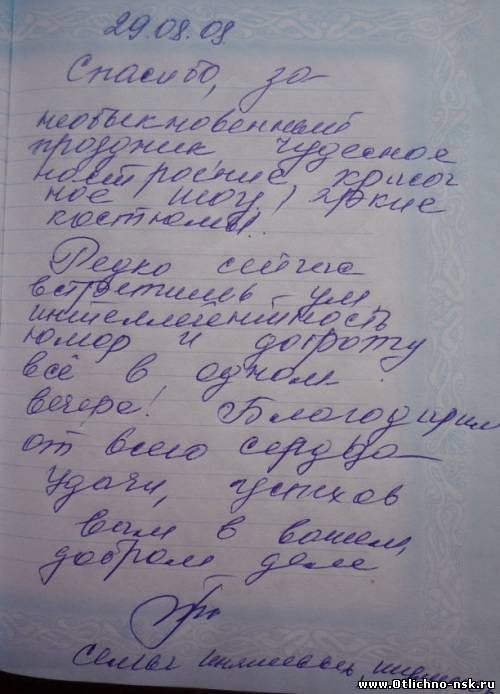 29.08.09
Спасибо, за
необыкновенный
праздник чудесное
настроение красоч
ное шоу, яркие
костюмы!
Редко сейчас
встретишь ум,
интеллегентность
юмор и доброту
всё в одном
вечере! Благодарим
от всего сердца
Удачи, успехов
вам в вашем,
добром деле
семья
www.Otlichno-nsk.ru